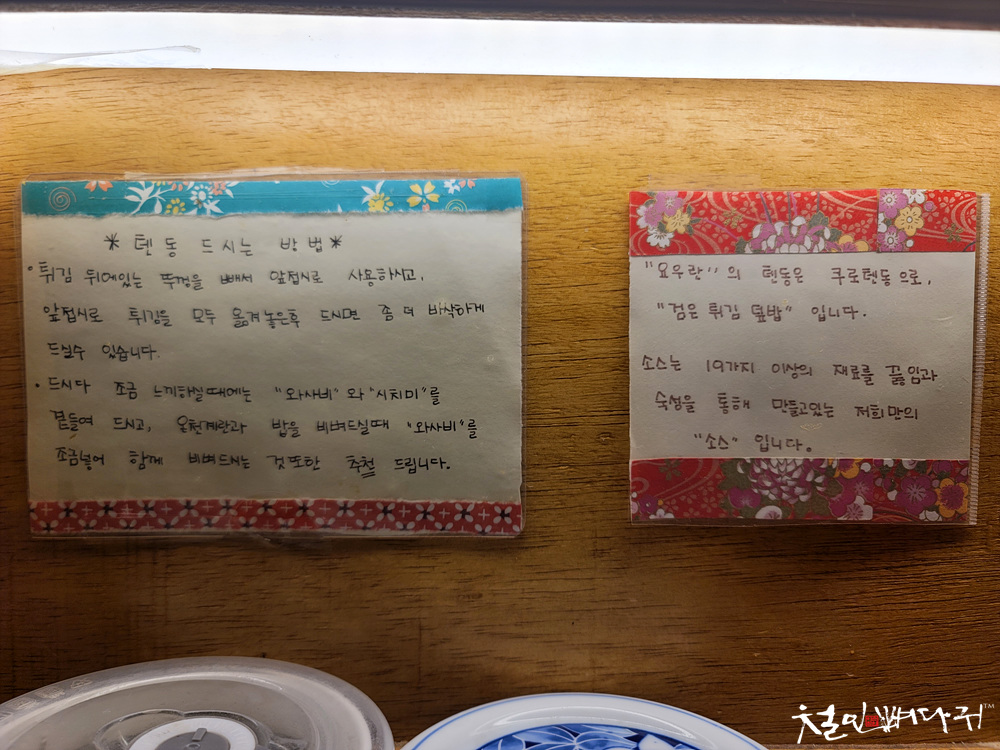 * 텐동 드시는 방법 *
• 튀김 뒤에있는 뚜껑을 빼서 앞접시로 사용하시고,
앞접시로 튀김을 모두 옮겨놓은후 드시면 좀 더 바삭하게
드실수 있습니다.
• 드시다 조금 느끼하실때에는 "와사비" 와 "시치미"를
곁들여 드시고, 온천계란과 밥을 비벼드실때 "와사비"를
조금넣어 함께 비벼드시는 것또한 추천 드립니다.
"요우란"의 텐동은 쿠로텐동으로,
"검은 튀김 덮밥" 입니다.
소스는 19가지 이상의 재료를 끓임과
숙성을 통해 만들고있는 저희만의
"소스" 입니다.
철인뼈다귀™